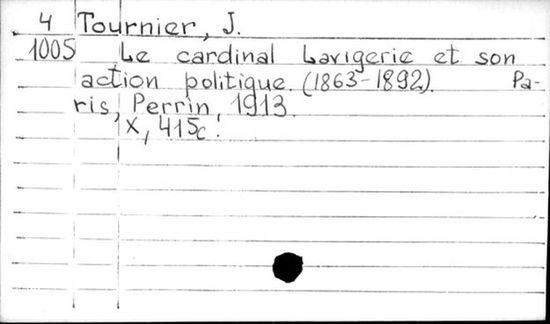 4 Tournier, J.
1005 Le cardinal Lavigerie et son
action politique. (1863-1892). Pa-
ris, Perrin, 1913.
X, 415c.